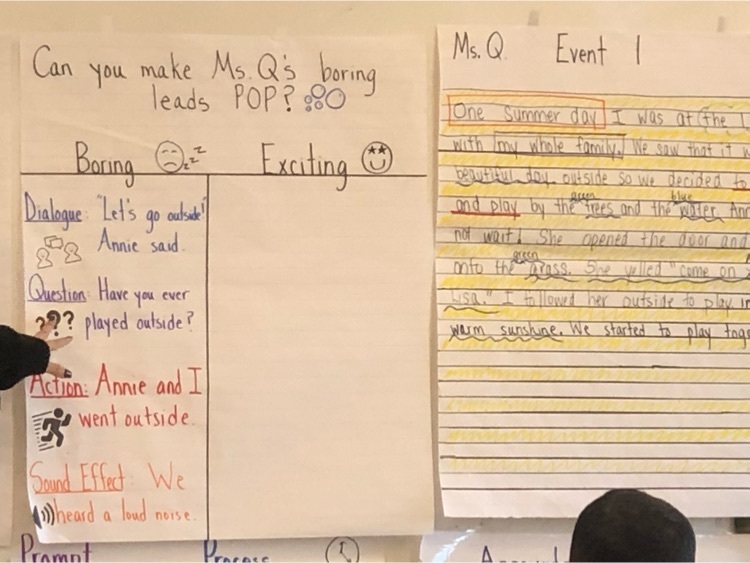 Can you make Ms. Q's boring
leads POP?
Boring zzz
Exciting
Dialogue: "Let's go outside!"
Annie said.
Question: Have you ever
??? played outside?
Action: Annie and I
went outside.
Sound Effect: We
heard a loud noise.
Prompt
Process
Ms. Q. Event 1
One summer day I was at the
with my whole family. We saw that it
beautiful day outside so we decided to
green blue
and play by the trees and the water.
not wait! She opened the door and
green
onto the grass. She yelled "come on
Lisa." I followed her outside to play in
warm sunshine. We started to play